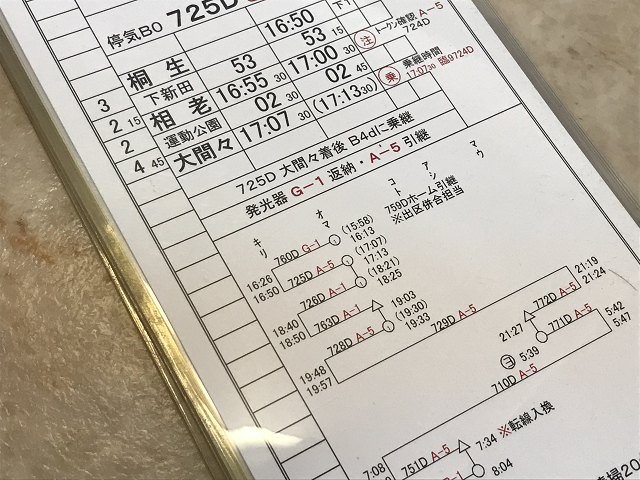 停気BO 725D
16:50 下1
3 桐生 53 53 15 注 トークン確認 A-5
724D
2 15 下新田 16:55 30 17:00 30 乗 乗継時間
17:07 30 臨9724D
2 相老 02 02 45
4 45 運動公園 17:07 30 (17:13 30)
大間々
725D 大間々着後 B4dに乗継
発光器 G-1 返納・A-5 引継
キリ オマ コト アシ マウ
759Dホーム引継
※出区併合担当
760D G-1 (15:58)
16:13
16:26
16:50 725D A-5 (17:07)
17:13
726D A-1 (18:21)
18:25
18:40
18:50 763D A-1 19:03
(19:30)
728D A-5 19:33
19:48
19:57 729D A-5 21:19
21:24
772D A-5
21:27
771D A-5 5:42
5:47
ヨ 5:39
710D A-5
7:34 ※転線入換
7:08 751D A-5
8:04